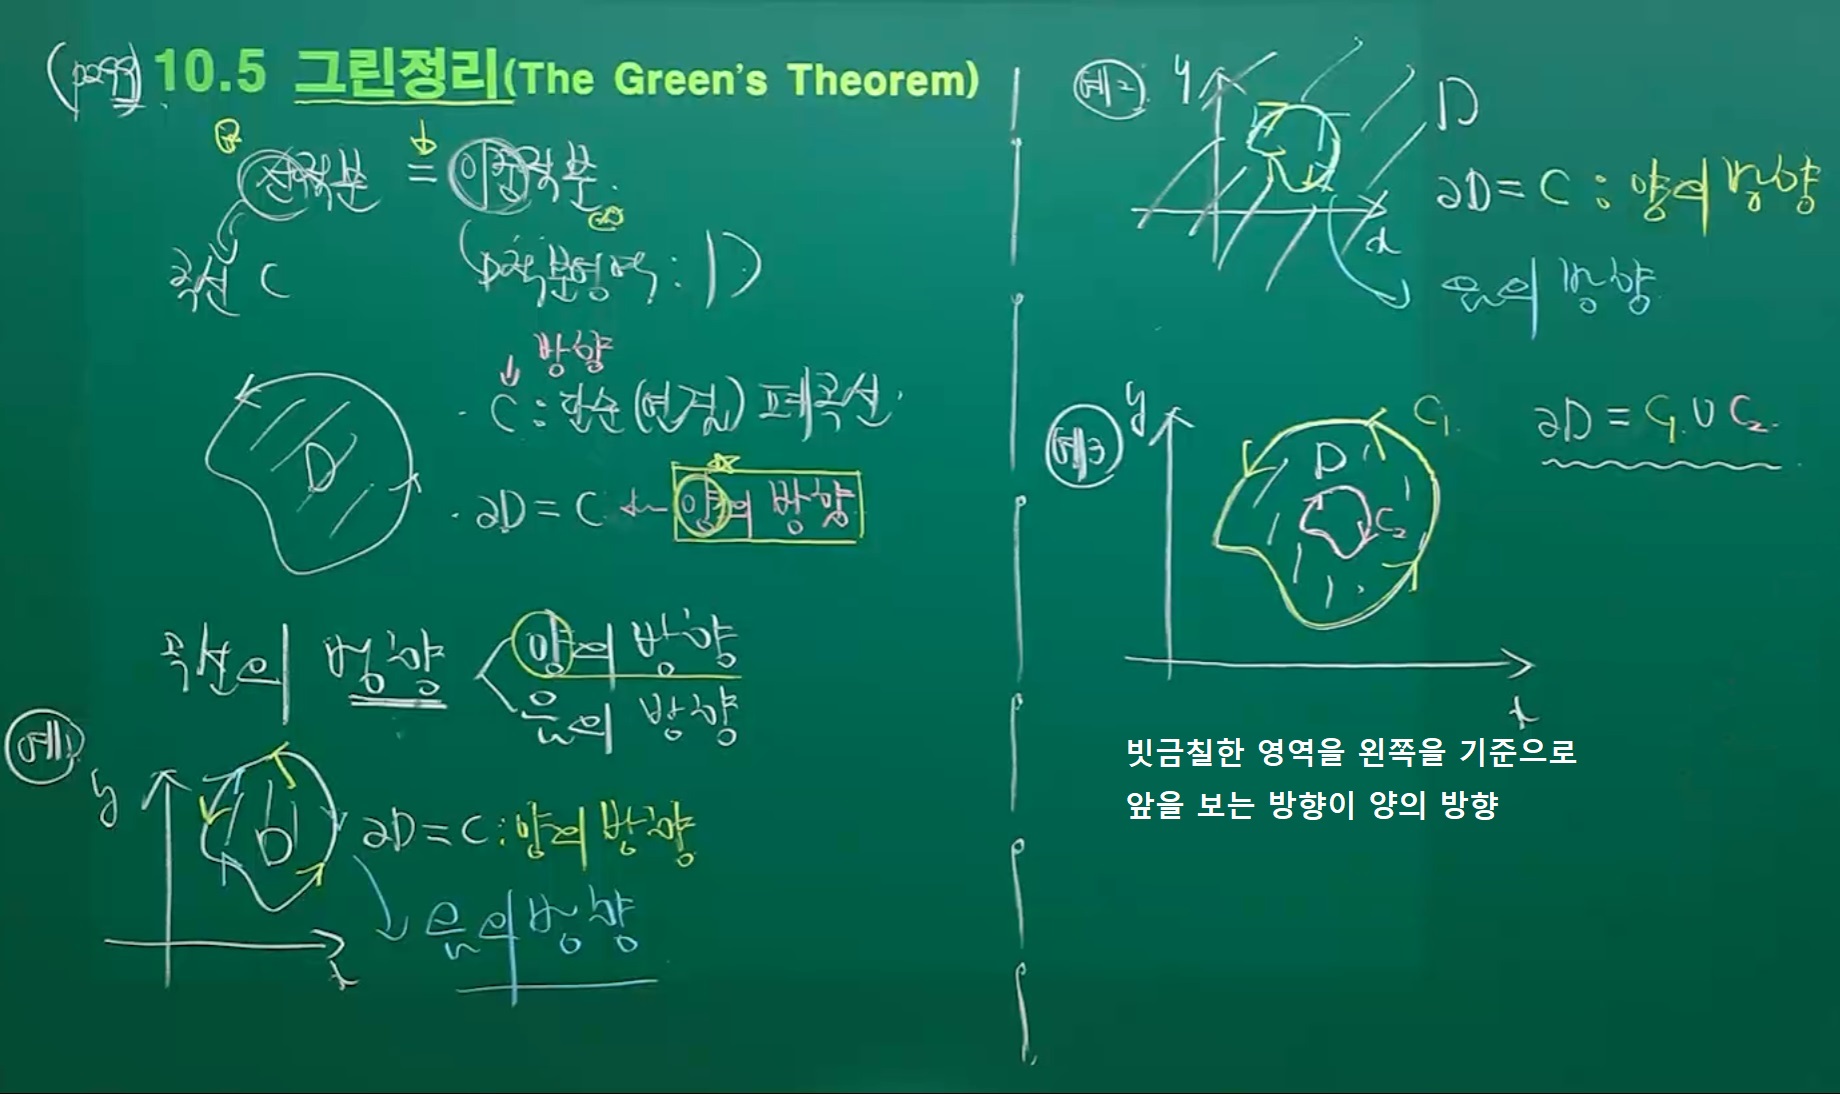 (p299) 10.5 그린정리(The Green's Theorem)
선적분 = 이중적분.
곡선 C
(적분영역 : D)
방향
· C : 단순(연결) 폐곡선.
D
· ∂D = C ← 양의 방향
곡선의 방향
양의 방향
음의 방향
예1
y
D
x
∂D = C : 양의 방향
음의 방향
예2
y
D
x
∂D = C : 양의 방향
음의 방향
예3
y
D
C₁
C₂
x
∂D = C₁ ∪ C₂.
빗금칠한 영역을 왼쪽을 기준으로
앞을 보는 방향이 양의 방향